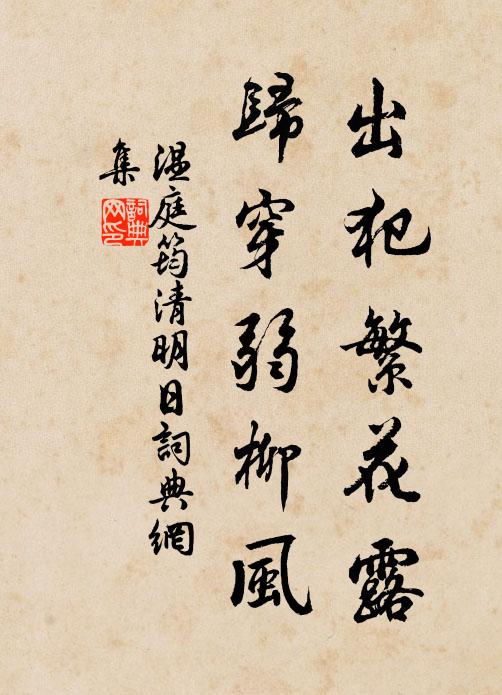 出犯繁花露
歸穿弱柳風
溫庭筠清明日詞典網
集
詞典
网印